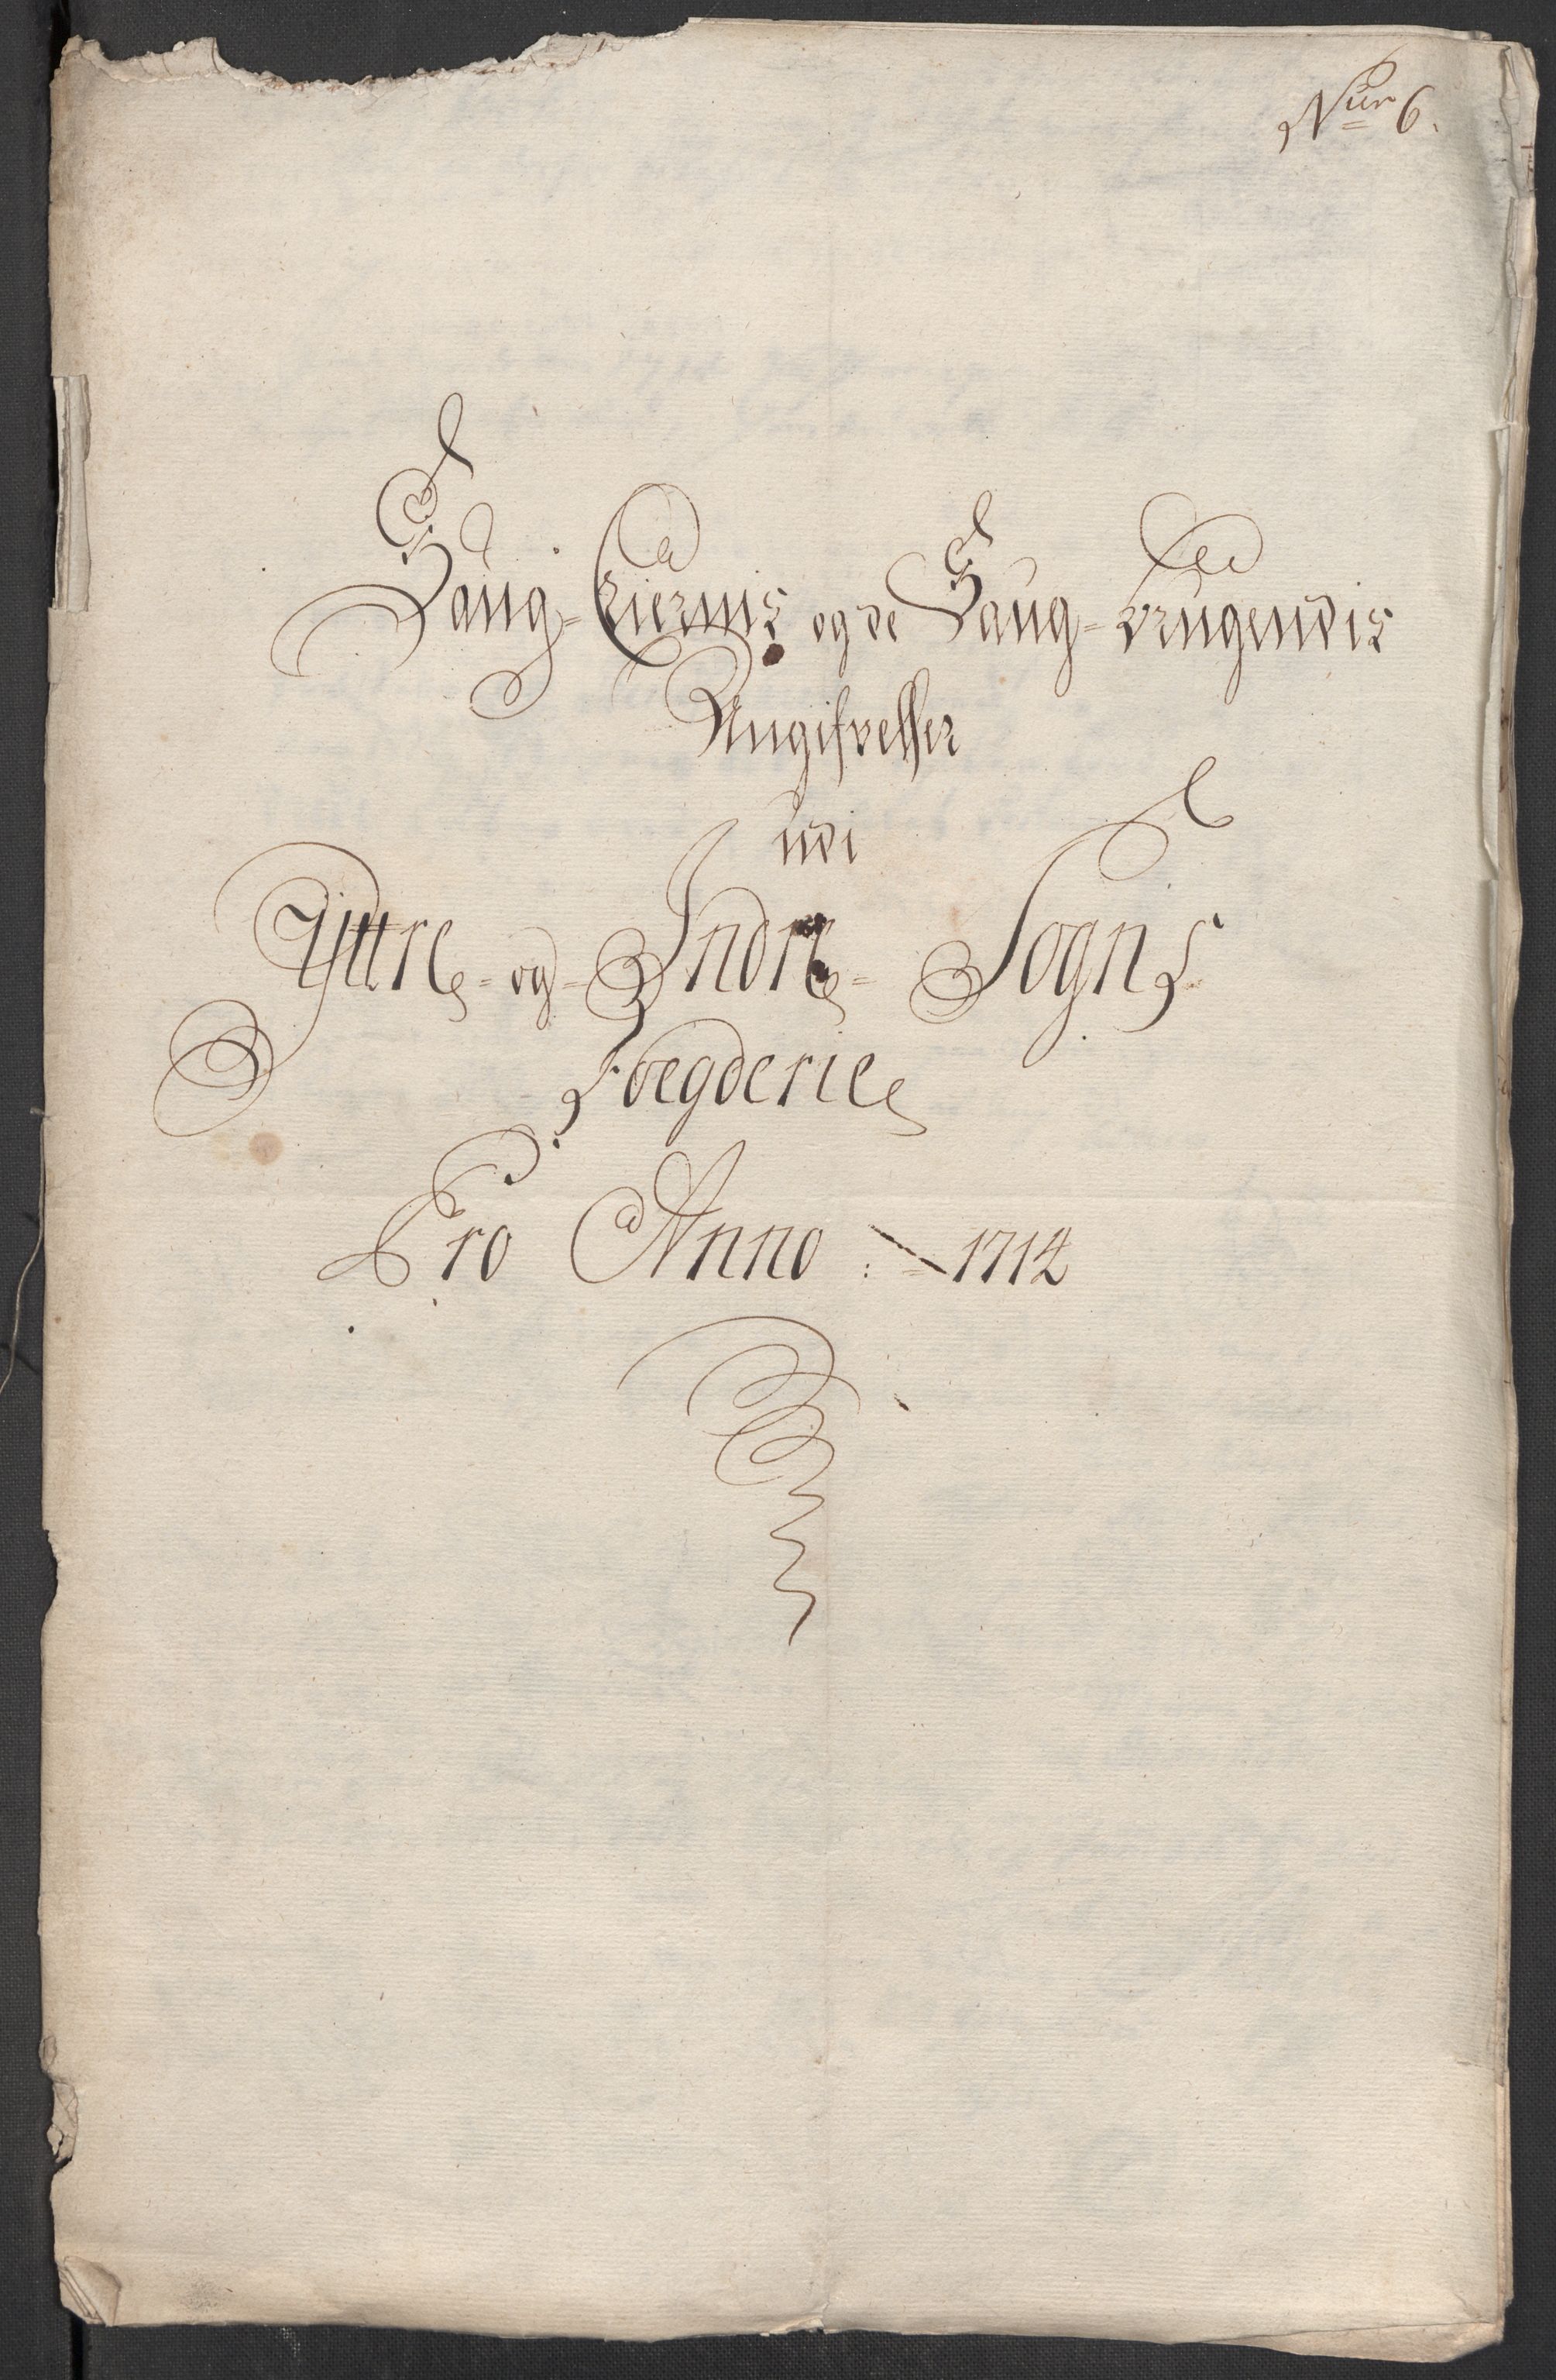 Num 6.
Saug-Eiernis og de Saug-brugendis
Angifvelsser
udi
Yttre- og- Indre- Sogns
Foegderie
Pro Anno: 1712